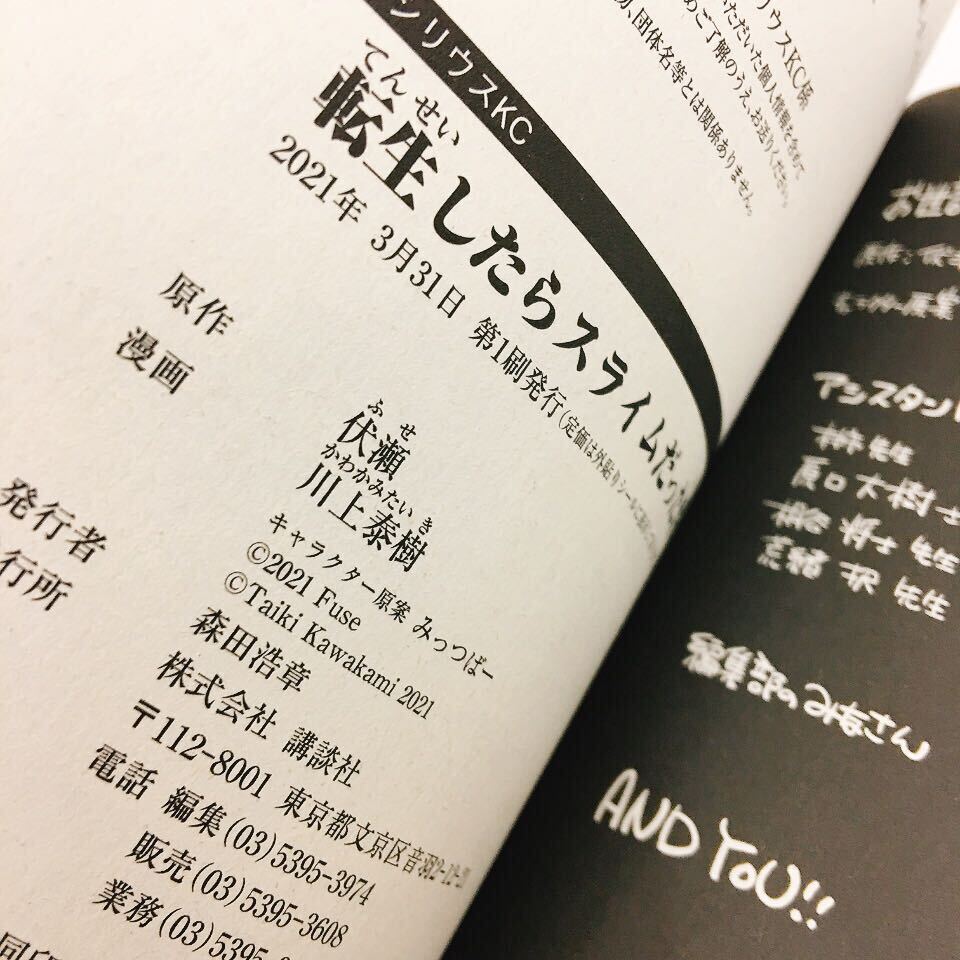 シリウスKC係
いただいた個人情報を含めて
めご了解のうえ、お送りください。
団体名等とは関係ありません。
シリウスKC
てんせい
転生したらスライムだっ
2021年 3月31日 第1刷発行(定価は外貼りシールに
原作
ふせ
伏瀬
漫画
かわかみたいき
川上泰樹
キャラクター原案 みっつばー
©2021 Fuse
©Taiki Kawakami 2021
発行者
森田浩章
行所
株式会社 講談社
〒112-8001 東京都文京区音羽2-12-21
電話 編集(03)5395-3974
販売(03)5395-3608
業務(03)5395-
アシスタント
先生
大樹
将士 先生
先生
編集部のみなさん
AND YOU!!